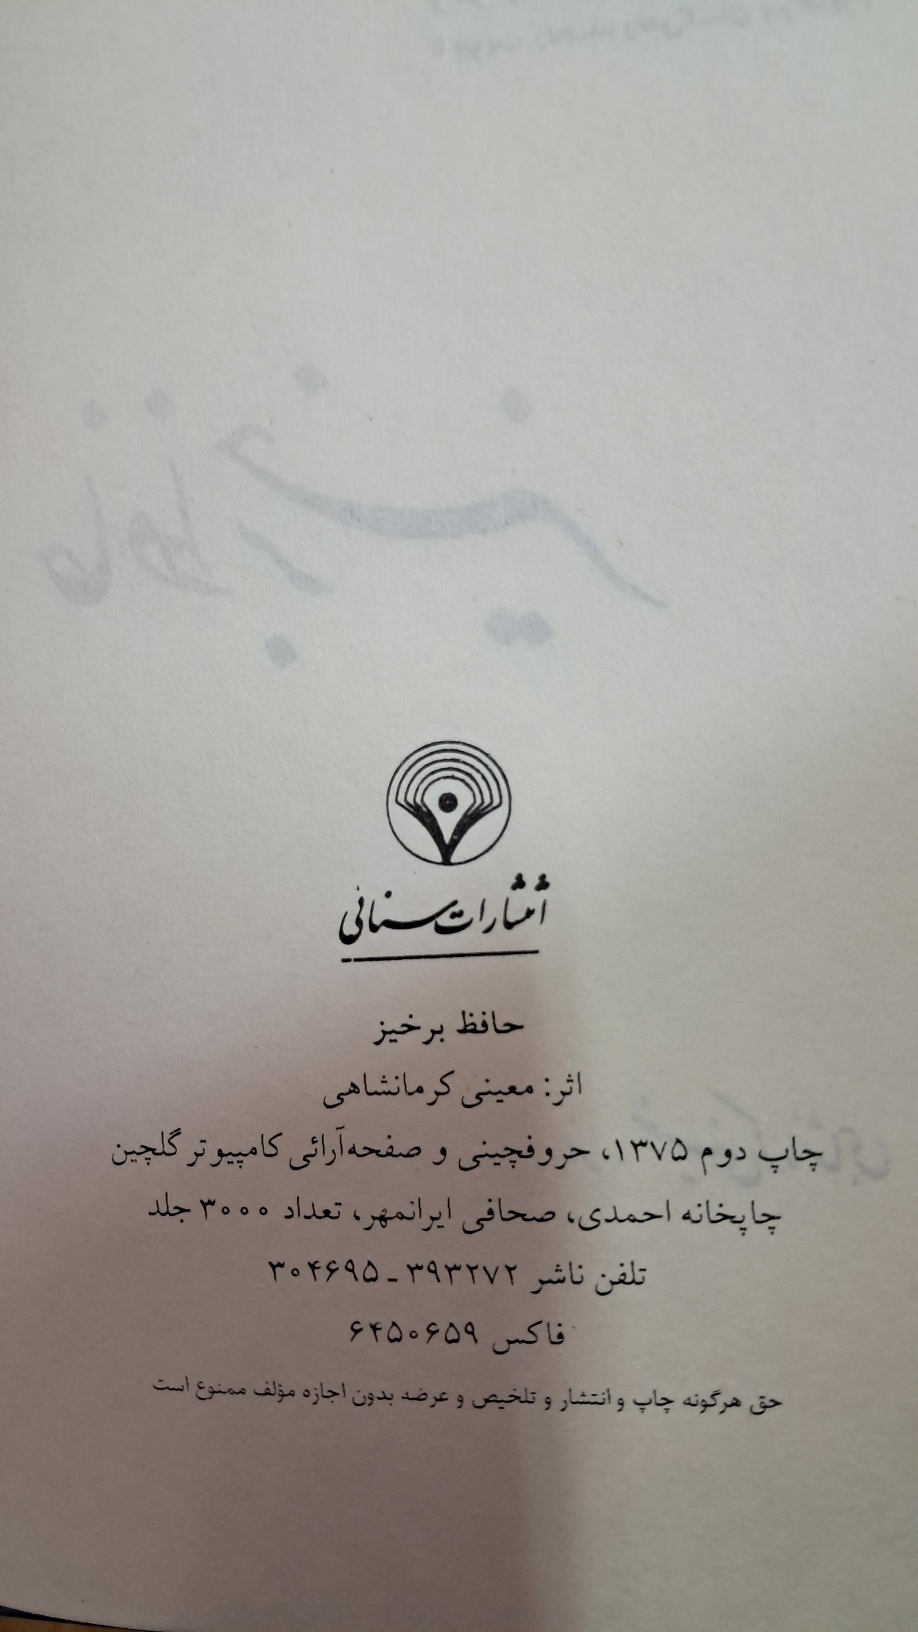 انتشارات سنائی
حافظ برخیز
اثر: معینی کرمانشاهی
چاپ دوم ۱۳۷۵، حروفچینی و صفحه‌آرائی کامپیوتر گلچین
چاپخانه احمدی، صحافی ایرانمهر، تعداد ۳۰۰۰ جلد
تلفن ناشر ۳۹۳۲۷۲ ـ ۳۰۴۶۹۵
فاکس ۶۴۵۰۶۵۹
حق هرگونه چاپ و انتشار و تلخیص و عرضه بدون اجازه مؤلف ممنوع است